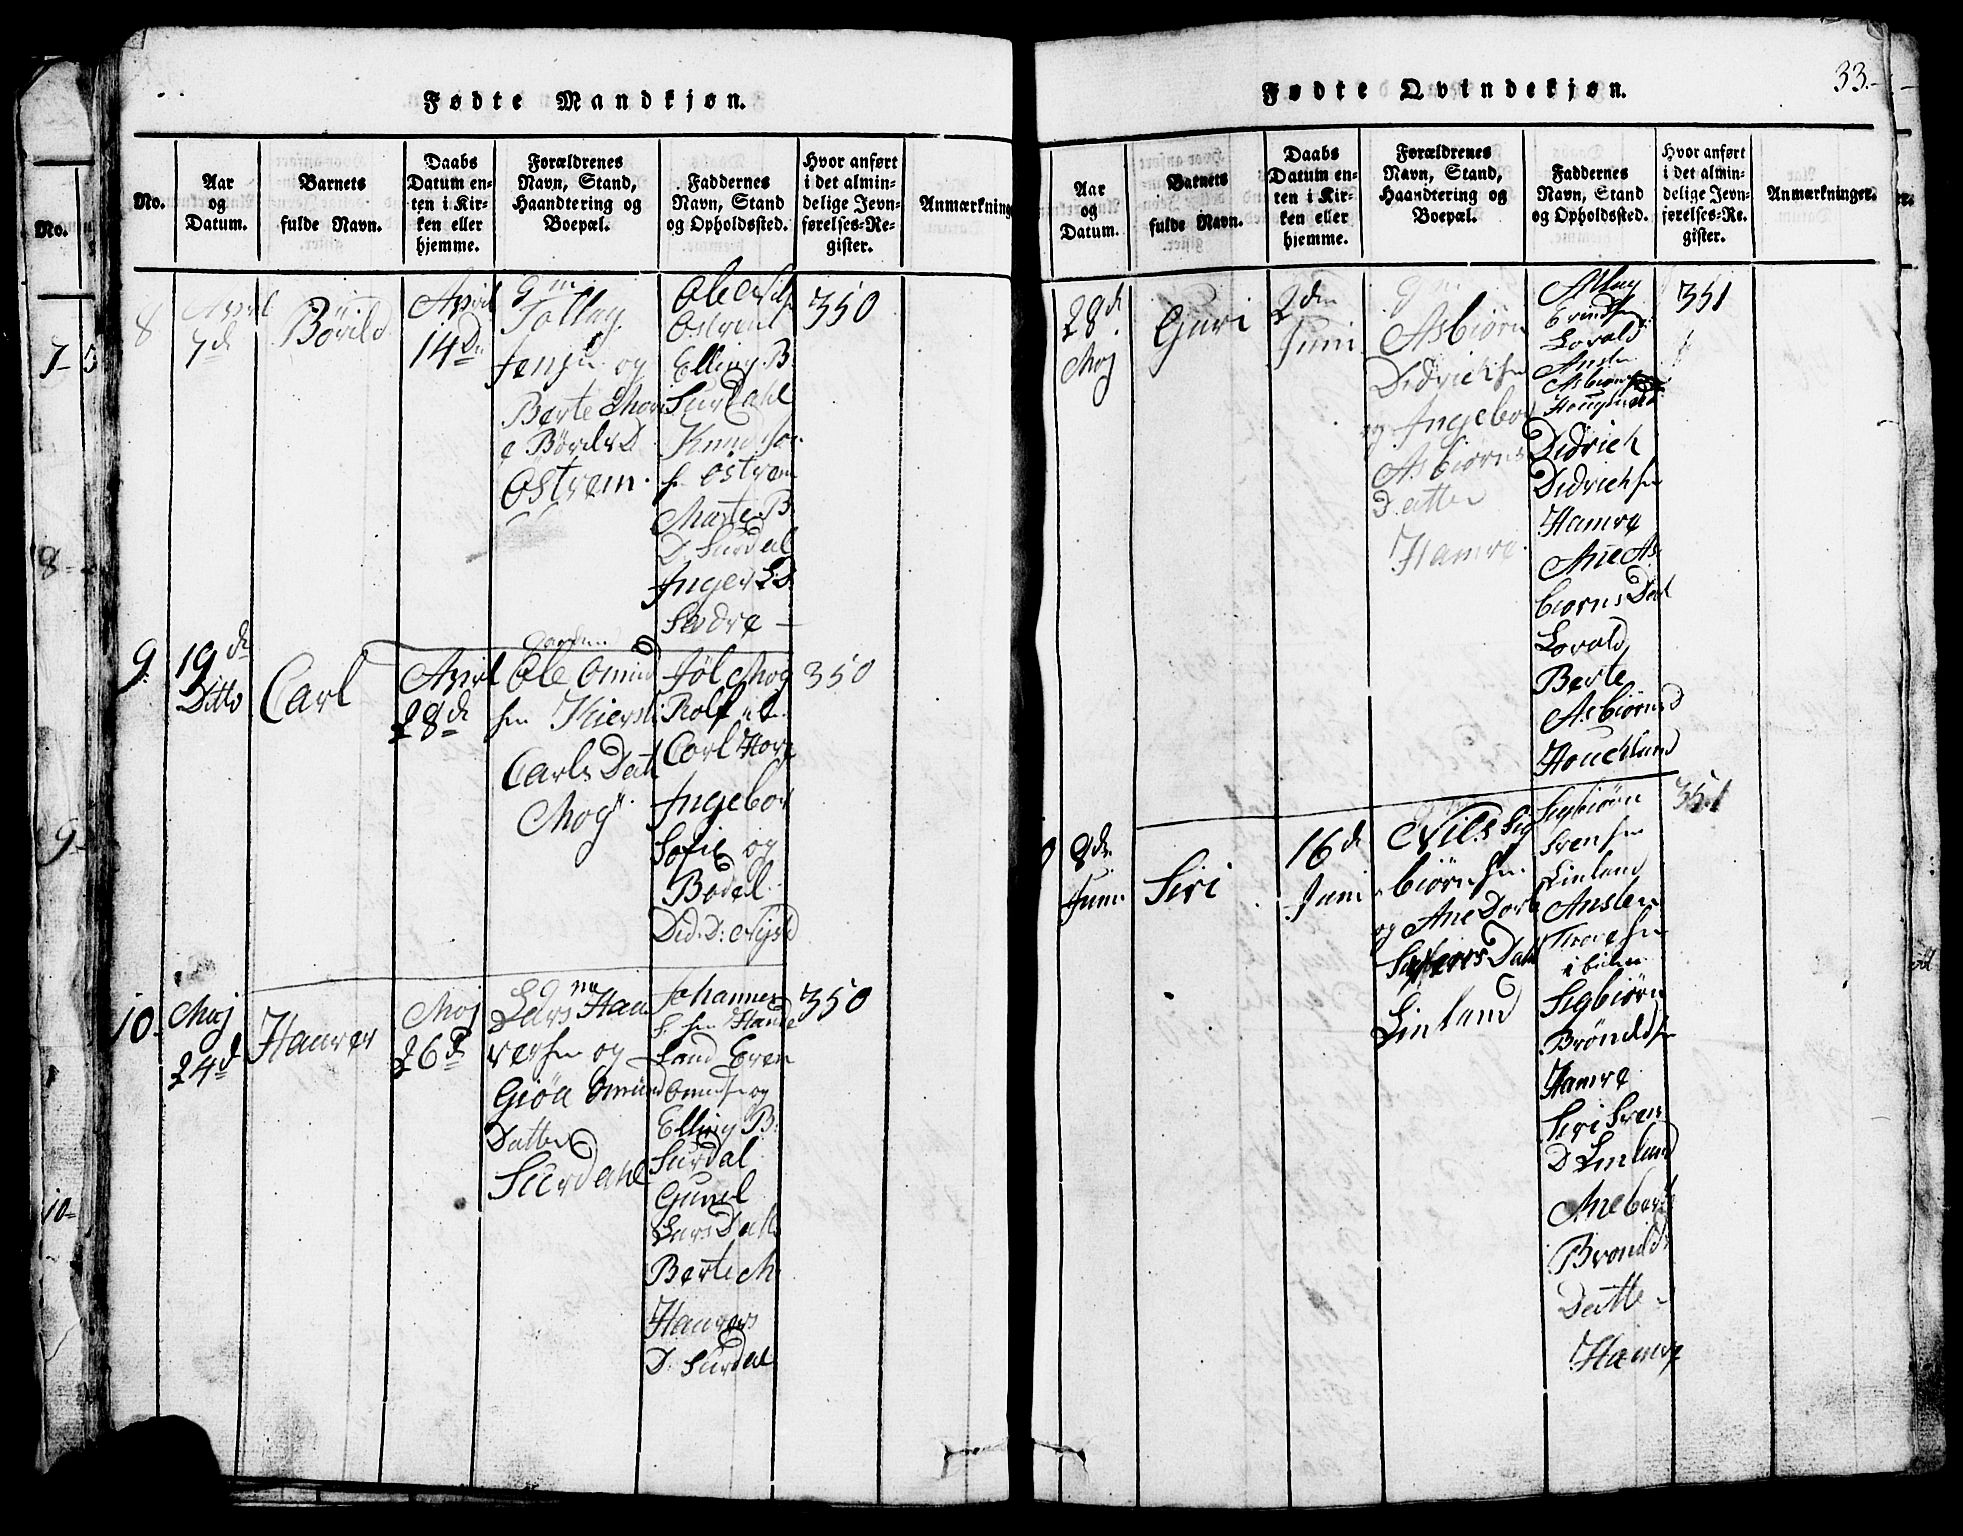 Fødte Mandkjøn.
No.
Aar
og
Datum.
Barnets
fulde Navn.
Daabs
Datum en-
ten i Kir-
ken eller
hjemme.
Forældrenes
Navn, Stand,
Haandtering og
Boepæl.
Faddernes
Navn, Stand
og Opholdssted.
Hvor anført
i det almin-
delige Jevn-
førelses-Re-
gister.
Anmærkning
8
April
7d
Børild
April
14De
Gm
Tollag
Jensen og
Berte Mari
e Børels D
Østrem.
Ole Nils
Østrem
Elling B
Surdahl
Knud
Østrem
Marte B
D. Surdal
Inger
Sædre
350
9.
19de
Ditto
Carl
April
28d
Ole Omund
sen Kiersti
Carls Datt
Moÿ
Jøl Moÿ
Rolf
Carl Hove
Ingebor
Sofie og
Bodel
Did. D:
350
10.
Maj
24d
Haaver
Maj
26d
Gm
Lars Haa
versen og
Giøa Omund
Datter
Surdahl
Johannes
Haade
Land Even
Omundsen og
Elling B.
Surdal
Gunel
Lars Datt
Berte M
Haavers
D. Surdal
350
33.
Fødte Qvindekjøn.
Aar
og
Datum.
Barnets
fulde Navn.
Daabs
Datum en-
ten i Kir-
ken eller
hjemme.
Forældrenes
Navn, Stand,
Haandtering og
Boepæl.
Faddernes
Navn, Stand
og Opholdssted.
Hvor anført
i det almin-
delige Jevn-
førelses-Re-
gister.
Anmærkninger.
28d.
Maj
Guri
2den
Juni
Gm
Asbiørn
Didrichsen
og Ingebor
Asbiørns
Datter
Hamre
Aslag
Lovald
Asbiørnsen
Didrich
Didrichsen
Hamre
Ane As
biørns Dat
Lovald
Berte
Asbiørns d
Houchland
351
8de
Juni
Siri
16d
Juni
Nils Sig
biørnsen
og Ane Dort
Datt
Linland
Sigbiørn
Svensen
Linland
Ansten
Sigbiørn
Brønildsen
Hamre
Siri Sven
D Linland
Ane
Bronilds
Datte
Hamre
351
No.
7
8
9
10